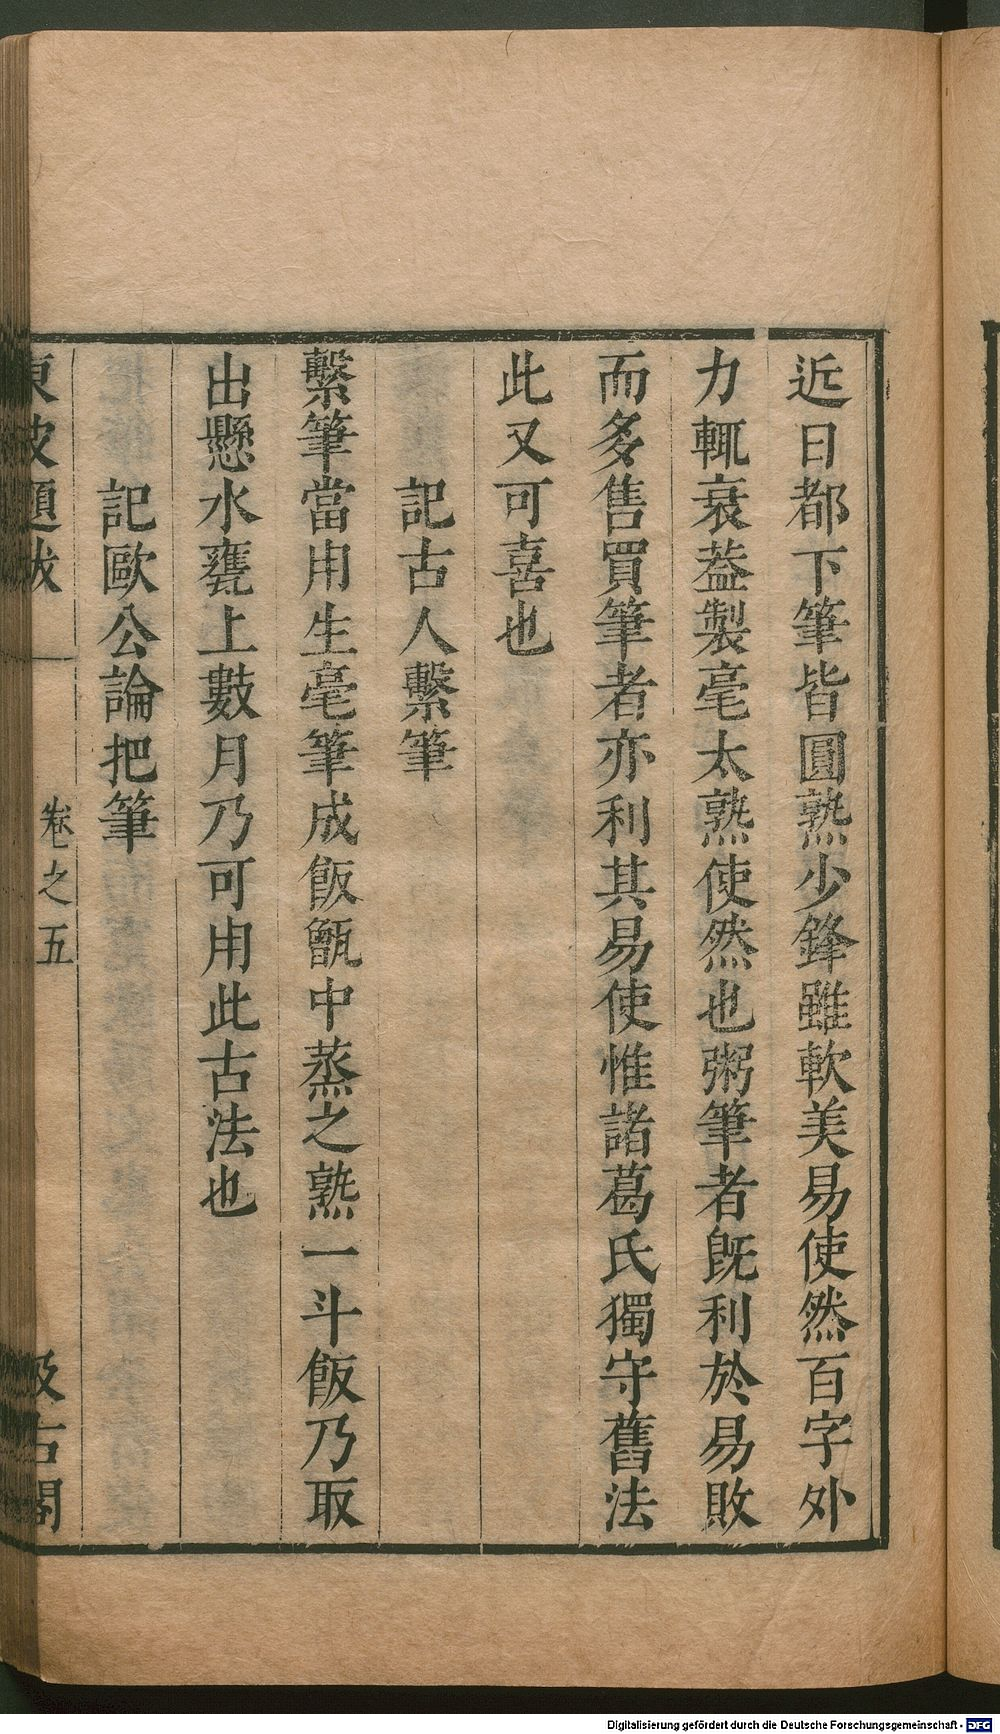 近日都下筆皆圓熟少鋒雖軟美易使然百字外
力輒衰葢製毫太熟使然也粥筆者旣利於易敗
而多售買筆者亦利其易使惟諸葛氏獨守舊法
此又可喜也
記古人繫筆
繫筆當用生毫筆成飯甑中蒸之熟一斗飯乃取
出懸水甕上數月乃可用此古法也
記歐公論把筆
東坡題跋
卷之五
汲古閣
Digitalisierung gefördert durch die Deutsche Forschungsgemeinschaft - DFG